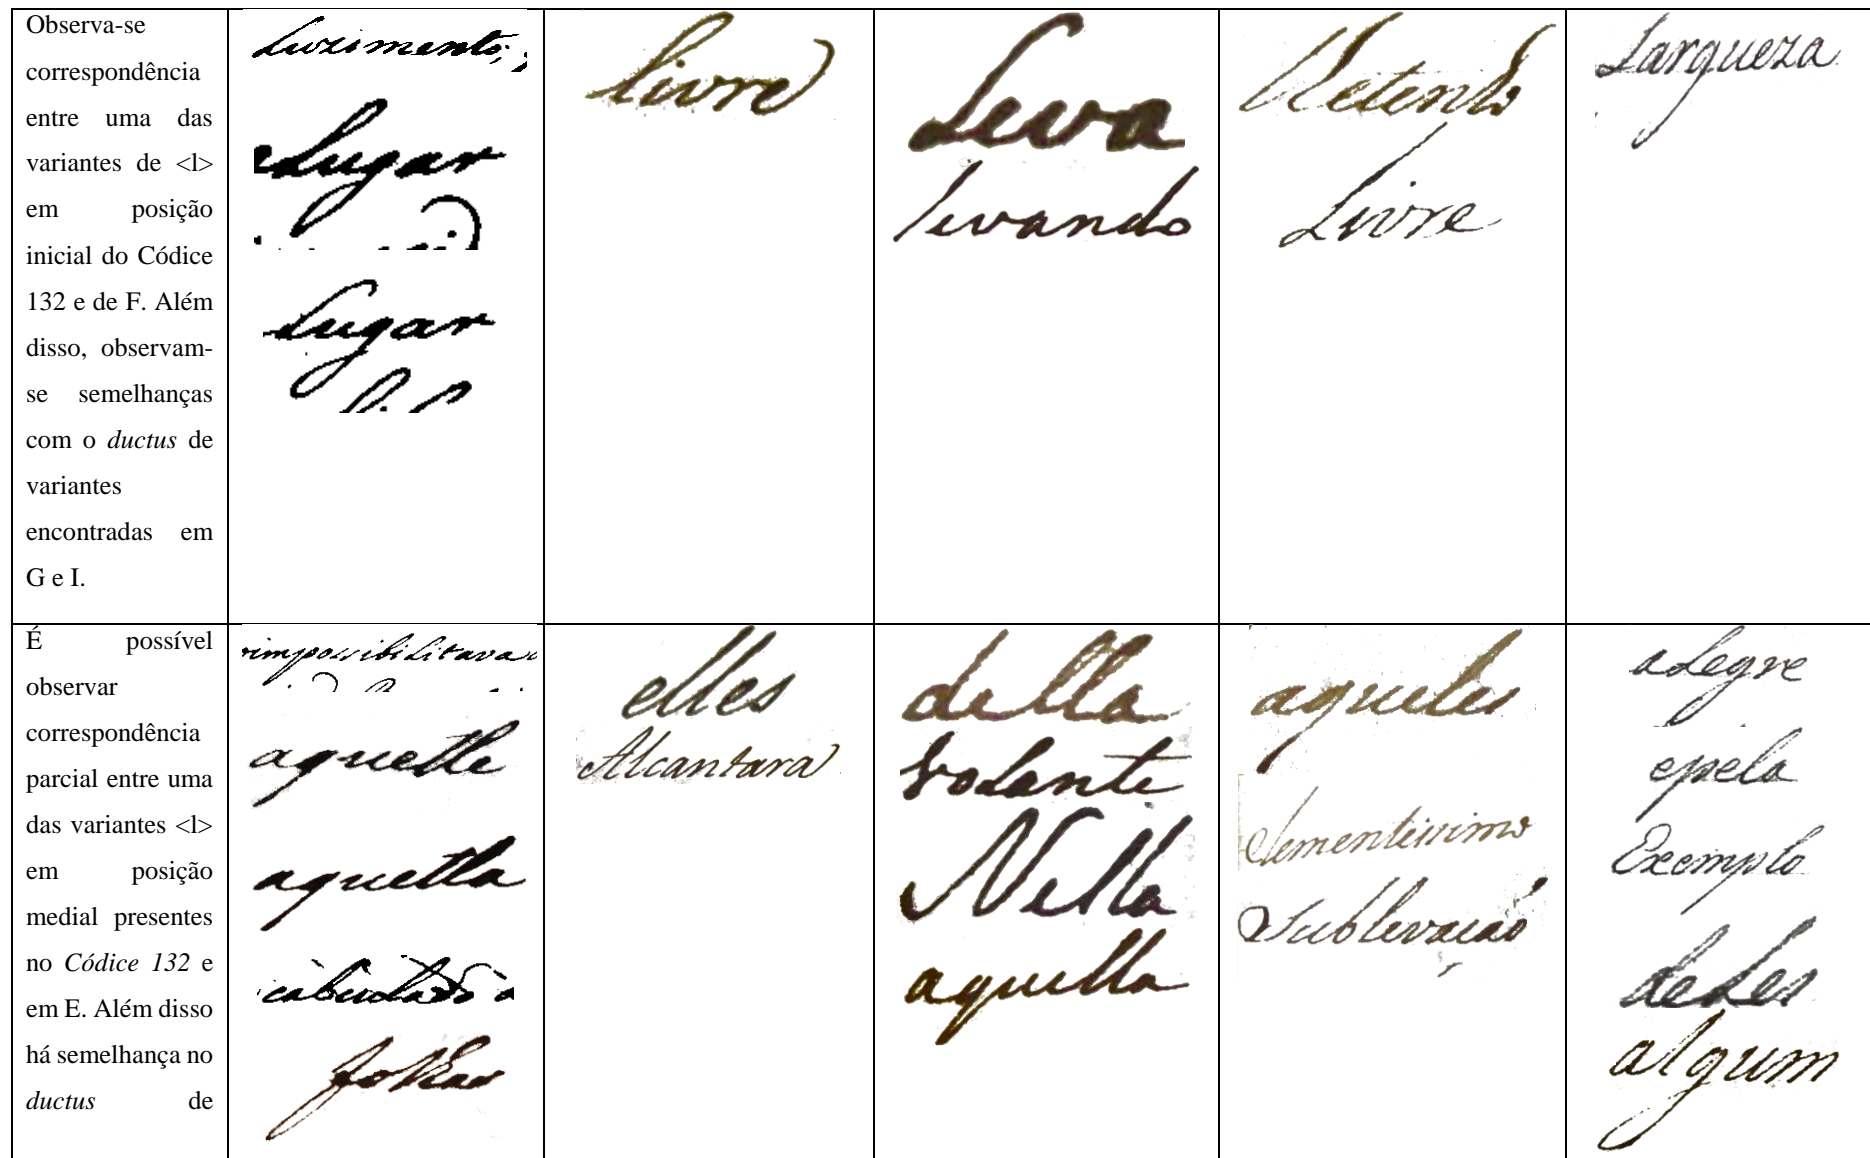 Observa-se
correspondência
entre uma das
variantes de <l>
em posição
inicial do Códice
132 e de F. Além
disso, observam-
se semelhanças
com o ductus de
variantes
encontradas em
G e I.
Luzimento,
Lugar
Lugar
livre
Leva
levando
Livre
Largueza
É possível
observar
correspondência
parcial entre uma
das variantes <l>
em posição
medial presentes
no Códice 132 e
em E. Além disso
há semelhança no
ductus de
rimpossibilitava
aquelle
aquella
elles
Alcantara
della
volante
Nella
aquella
aqueles
Clementissimo
Sublevação
alegre
epela
Exemplo
deles
algum